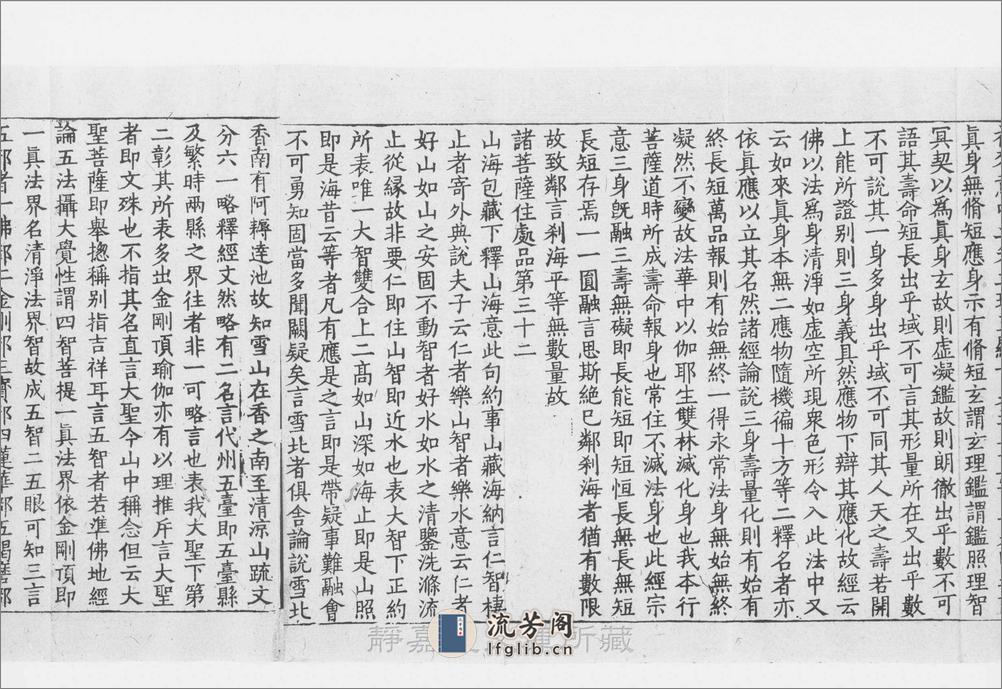 真身無脩短應身示有脩短玄謂玄理鑑謂鑑照理智
冥契以為真身玄故則虛凝鑑故則朗徹出乎數不可
語其壽命短長出乎域不可言其形量所在又出乎數
不可說其一身多身出乎域不可同其人天之壽若開
上能所證別則三身義具然應物下辯其應化故經云
佛以法為身清淨如虛空所現衆色形令入此法中又
云如來真身本無二應物隨機徧十方等二釋名者亦
依真應以立其名然諸經論說三身壽量化則有始有
終長短萬品報則有始無終一得永常法身無始無終
凝然不變故法華中以伽耶生雙林滅化身也我本行
菩薩道時所成壽命報身也常住不滅法身也此經宗
意三身旣融三壽無礙即長能短即短恒長無長無短
長短存焉一一圓融言思斯絕已鄰刹海者猶有數限
故致鄰言刹海平等無數量故
諸菩薩住處品第三十二
山海包藏下釋山海意此句約事山藏海納言仁智棲
止者寄外典說夫子云仁者樂山智者樂水意云仁者
好山如山之安固不動智者好水如水之清鑒洗滌流
止從緣故非要仁即住山智即近水也表大智下正約
所表唯一大智雙合上二高如山深如海止即是山照
即是海昔云等者凡有應是之言即是帶疑事難融會
不可勇知固當多聞闕疑矣言雪北者俱舍論說雪北
香南有阿耨達池故知雪山在香之南至清涼山䟽文
分六一略釋經文然略有二名言代州五臺即五臺縣
及繁時兩縣之界往者非一可略言也表我大聖下第
二彰其所表多出金剛頂瑜伽亦有以理推斥言大聖
者即文殊也不指其名直言大聖令山中稱念但云大
聖菩薩即举揔稱別指吉祥耳言五智者若準佛地經
論五法攝大覺性謂四智菩提一真法界依金剛頂即
一真法界名清淨法界智故成五智二五眼可知三言
五部者一佛部二金剛部三寶部四蓮華部五羯磨部
流芳阁
lfglib.cn